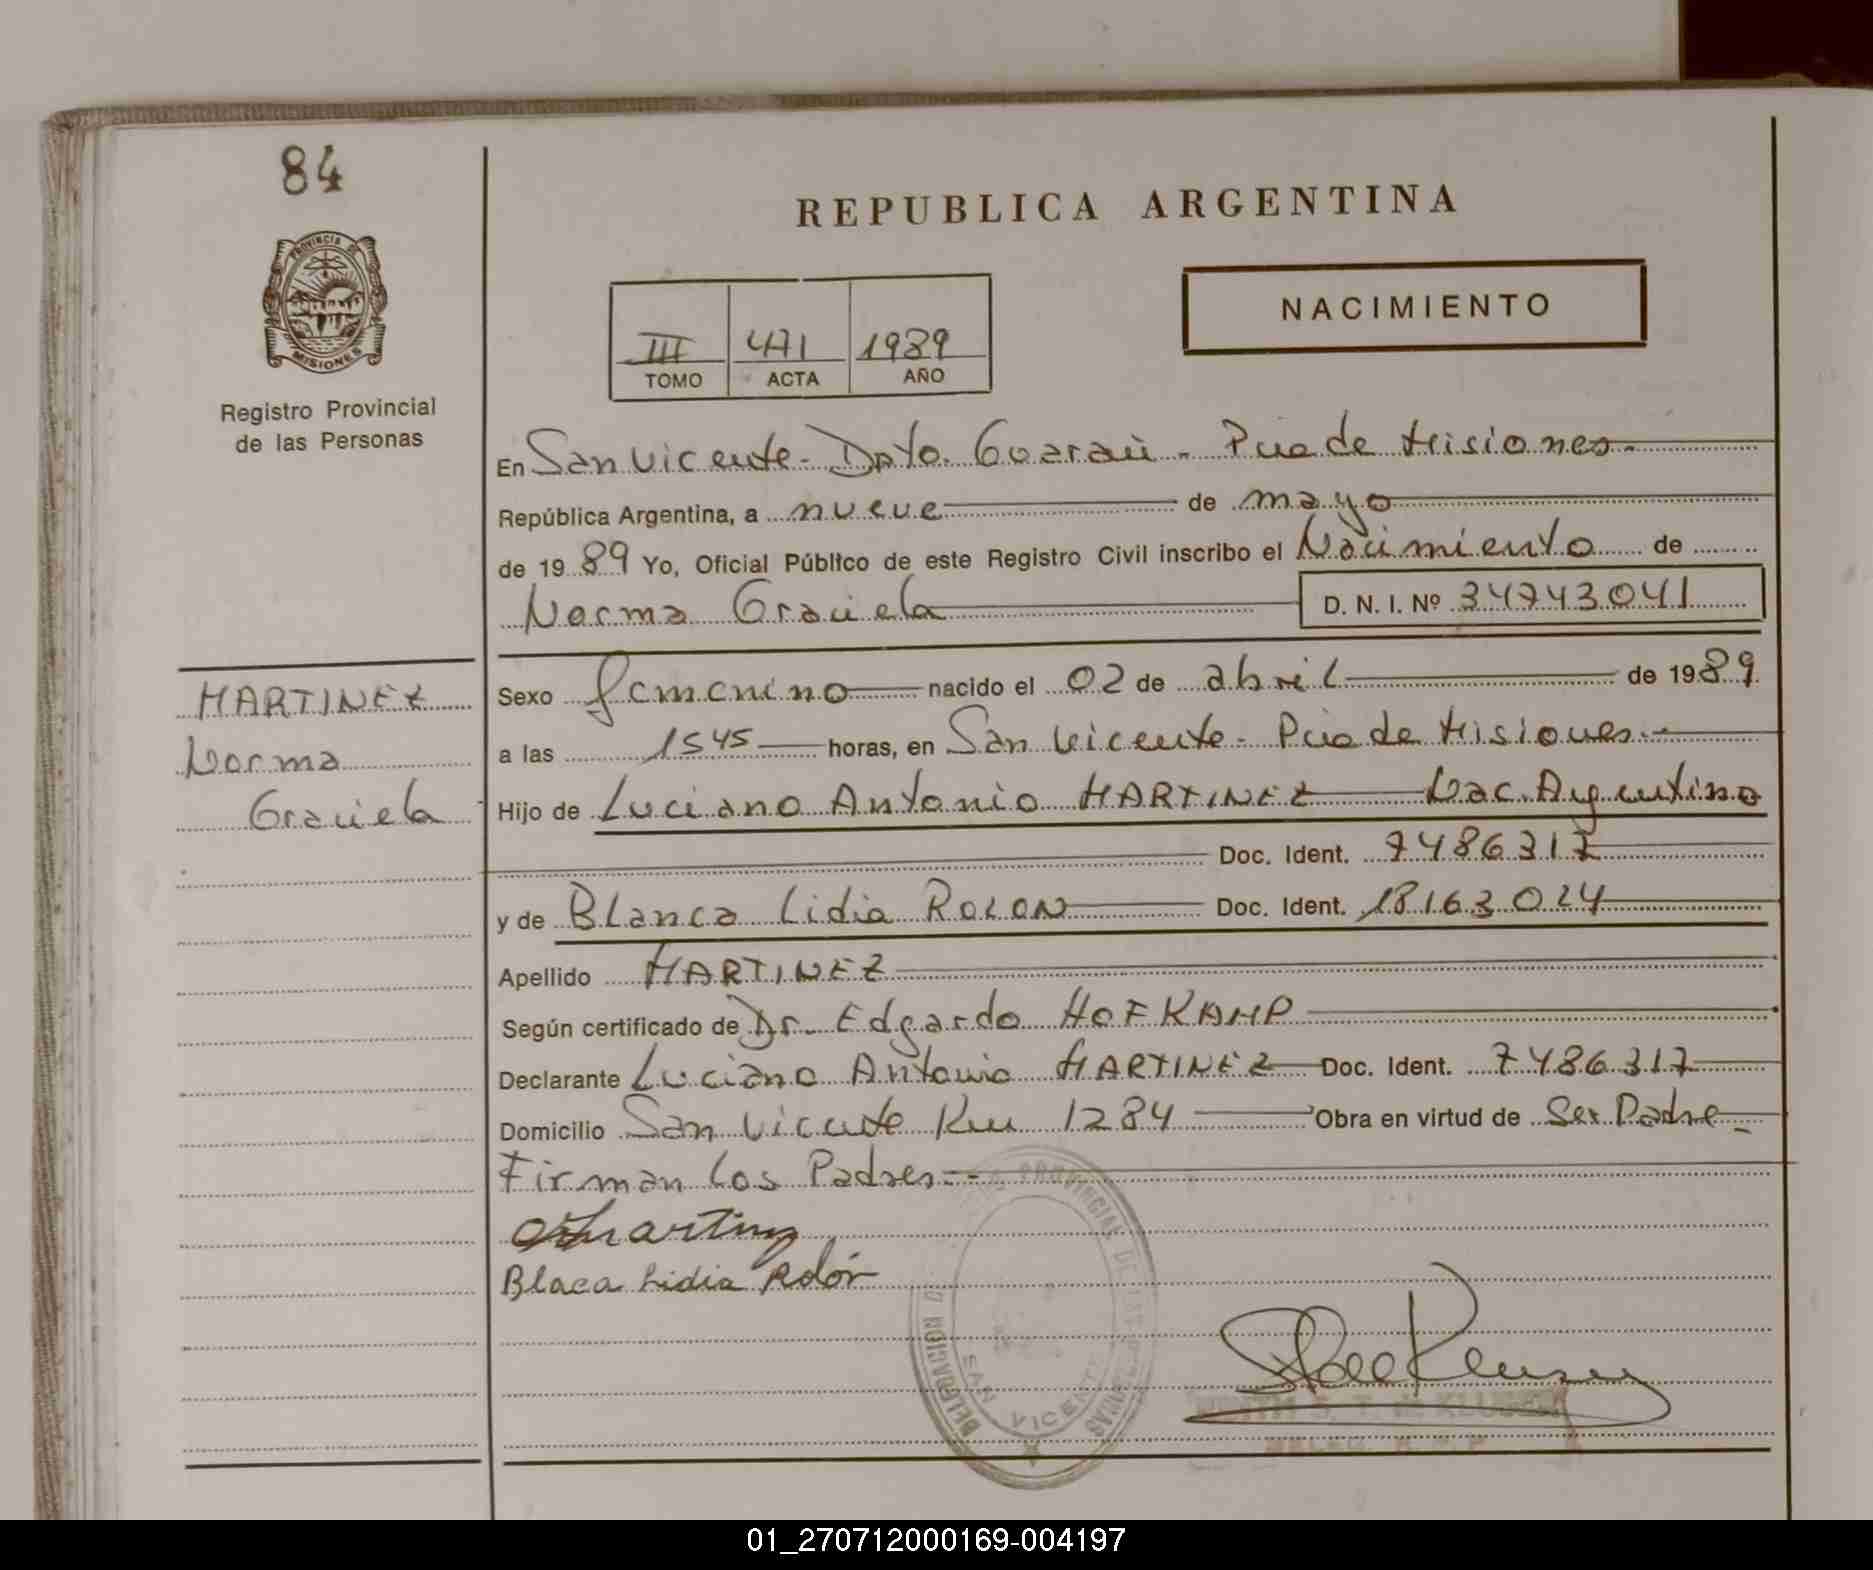 84
REPUBLICA ARGENTINA
PROVINCIA DE
MISIONES
Registro Provincial
de las Personas
III 471 1989
TOMO ACTA AÑO
NACIMIENTO
En San Vicente - Dpto. Guaraní - Pcia de Misiones.-
República Argentina, a nueve de mayo
de 1989 Yo, Oficial Público de este Registro Civil inscribo el Nacimiento de
Norma Graciela D. N. I. Nº 34743041
MARTINEZ
Norma
Graciela
Sexo femenino nacido el 02 de abril de 1989
a las 1545 horas, en San Vicente - Pcia de Misiones.-
Hijo de Luciano Antonio MARTINEZ Nac. Argentina
Doc. Ident. 7486317
y de Blanca Lidia ROLON Doc. Ident. 18163024
Apellido MARTINEZ
Según certificado de Dr. Edgardo HOFKAMP
Declarante Luciano Antonio MARTINEZ Doc. Ident. 7486317
Domicilio San Vicente Km 1284 Obra en virtud de Ser Padre -
Firman los Padres.-
Blaca Lidia Rolón
PROVINCIAL DE LAS PERSONAS
DELEGACION
SAN VICENTE
01_270712000169-004197